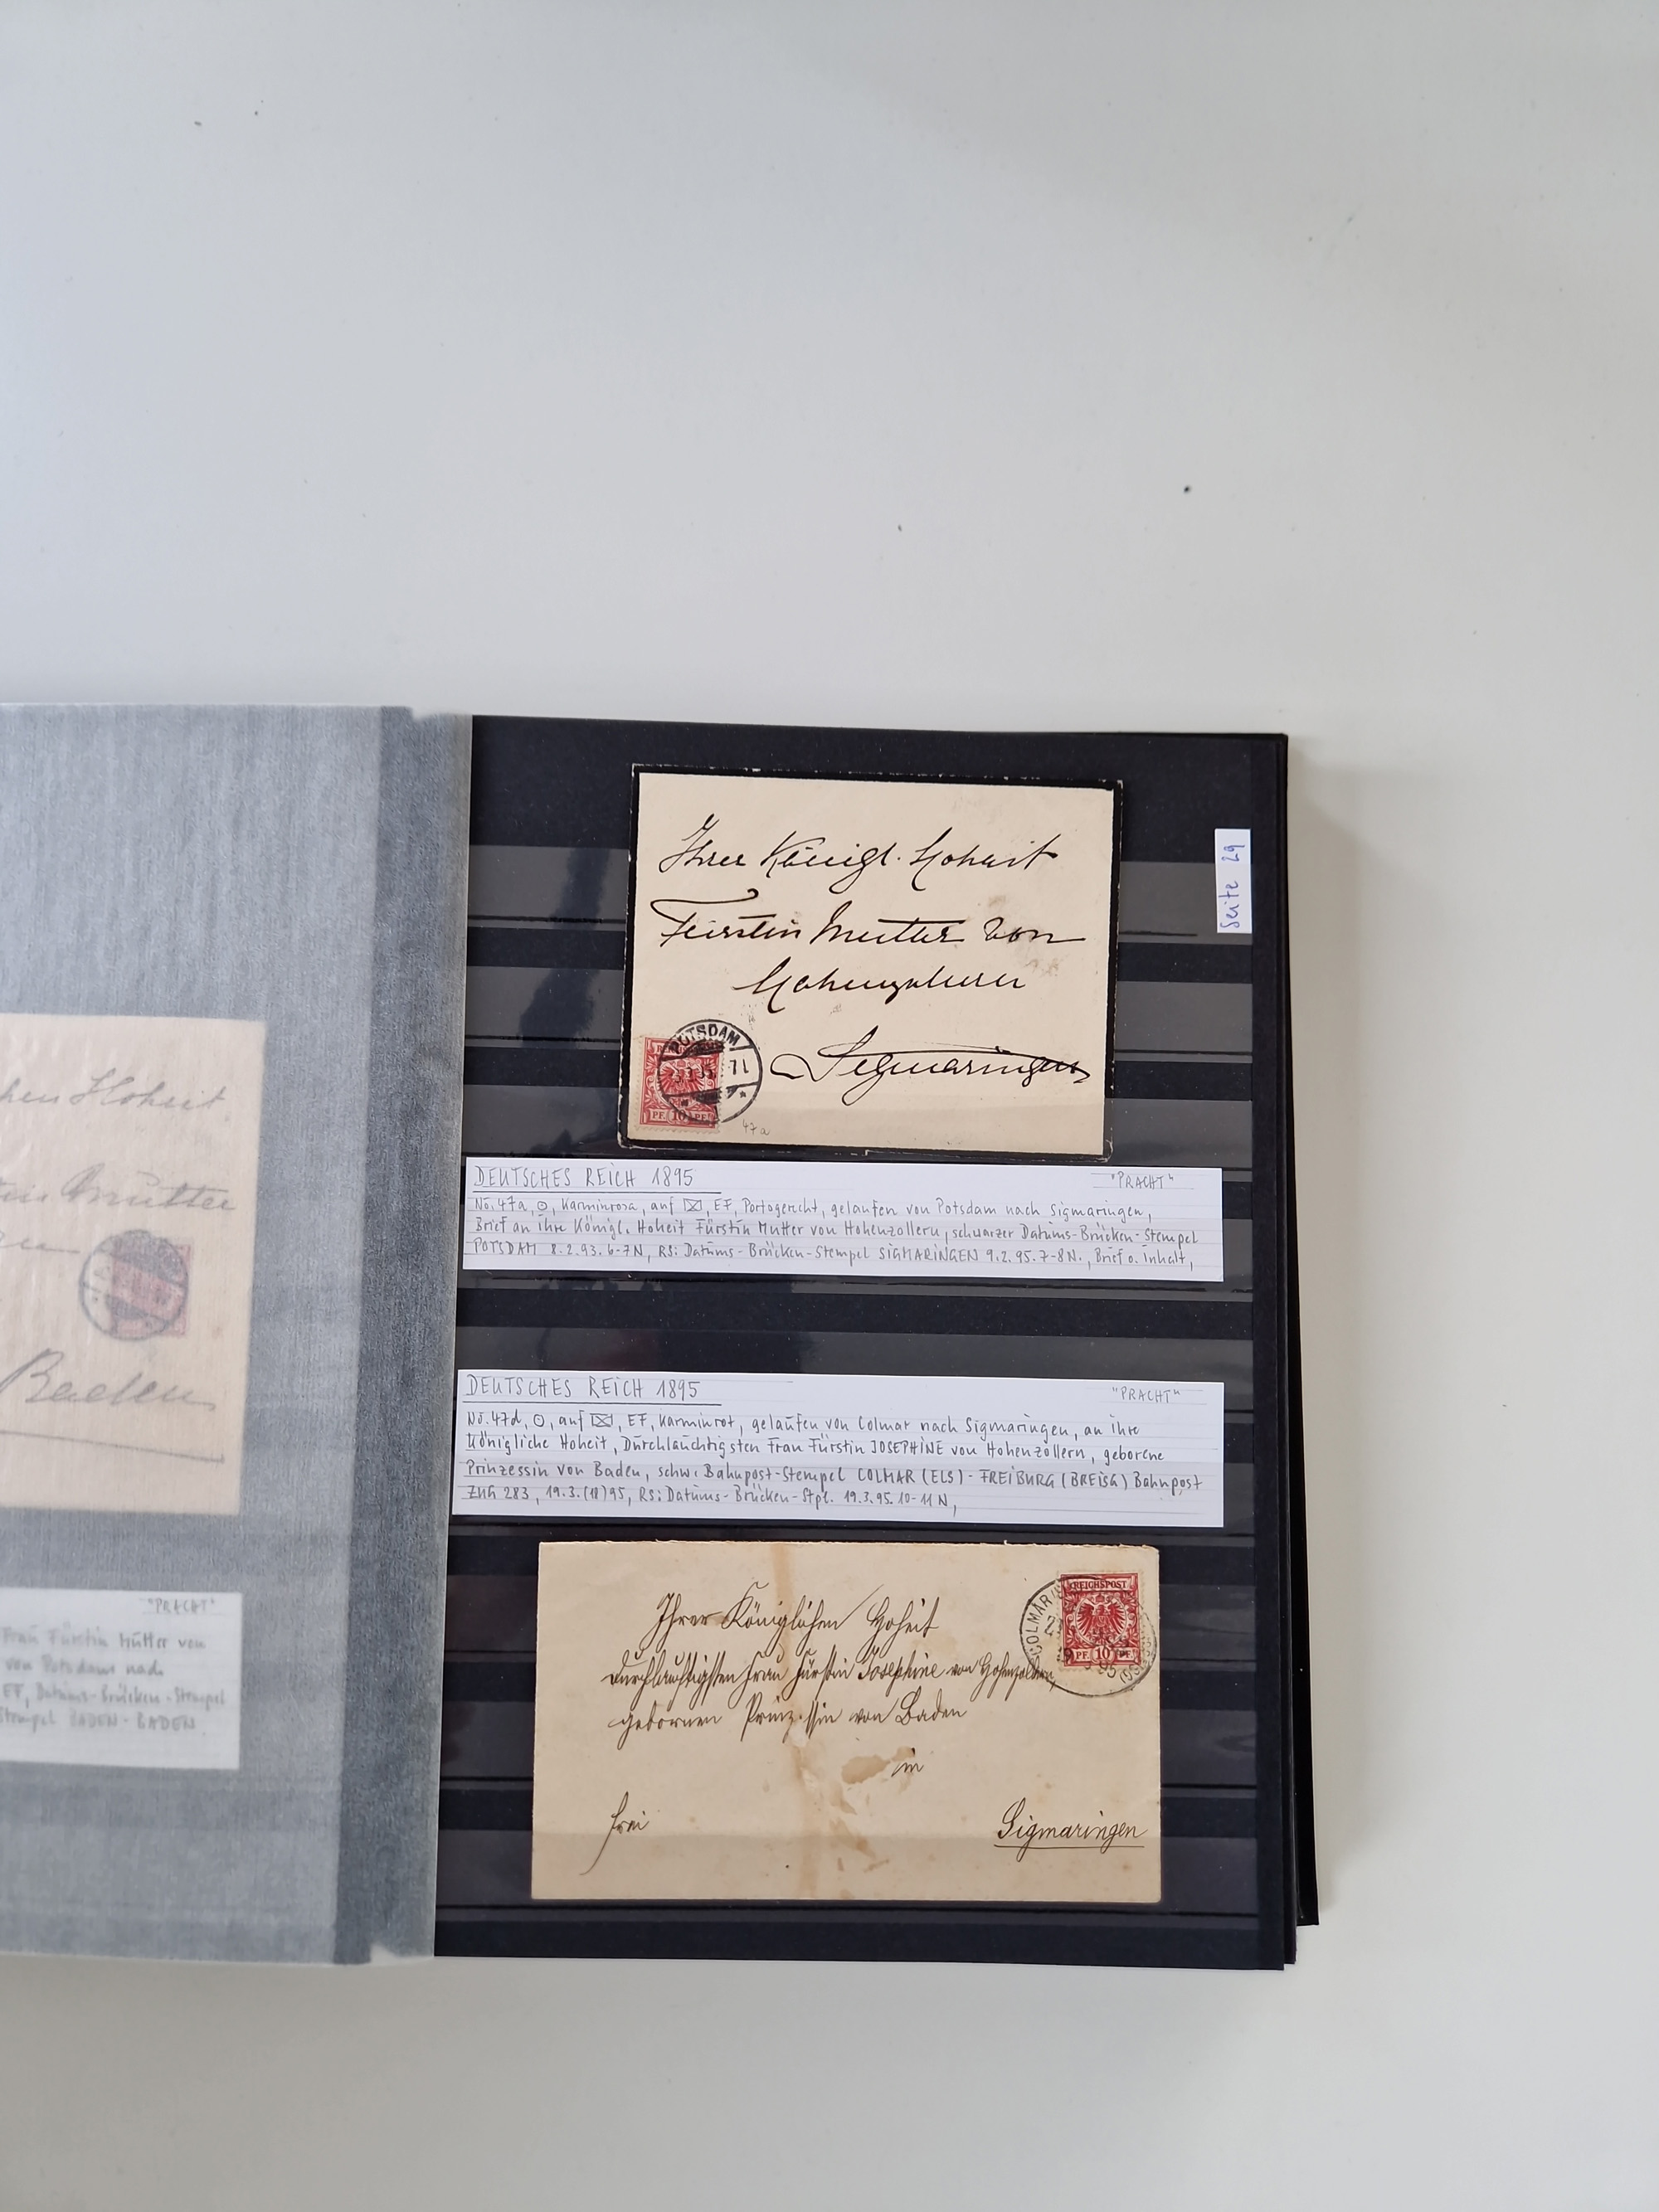 Hoheit
Mutter
Baden
"PRACHT"
Frau Fürstin Mutter von
von Potsdam nach
EF, Datums-Brücken-Stempel
Stempel BADEN-BADEN
Seite 29
Ihrer Königl. Hoheit
Fürstin Mutter von
Hohenzollern
Sigmaringen
POTSDAM
PF. 10 PF.
47a
DEUTSCHES REICH 1895 "PRACHT"
No. 47a, ⊙, Karminrosa, auf ✉, EF, Portogerecht, gelaufen von Potsdam nach Sigmaringen,
Brief an ihre Königl. Hoheit Fürstin Mutter von Hohenzollern, schwarzer Datums-Brücken-Stempel
POTSDAM 8.2.93. 6-7N, RS: Datums-Brücken-Stempel SIGMARINGEN 9.2.95. 7-8N., Brief o. Inhalt,
DEUTSCHES REICH 1895 "PRACHT"
No. 47d, ⊙, auf ✉, EF, Karminrot, gelaufen von Colmar nach Sigmaringen, an ihre
Königliche Hoheit, Durchlauchtigsten Frau Fürstin JOSEPHINE von Hohenzollern, geborene
Prinzessin von Baden, schw. Bahnpost-Stempel COLMAR (ELS) - FREIBURG (BREISG) Bahnpost
ZUG 283, 19.3.(18)95, RS: Datums-Brücken-Stpl. 19.3.95. 10-11N,
REICHSPOST
COLMAR
PF. 10 PF.
Ihrer Königlichen Hoheit
Durchlauchtigsten Frau Fürstin Josephine von Hohenzollern,
gebornen Prinzessin von Baden
in
frei
Sigmaringen